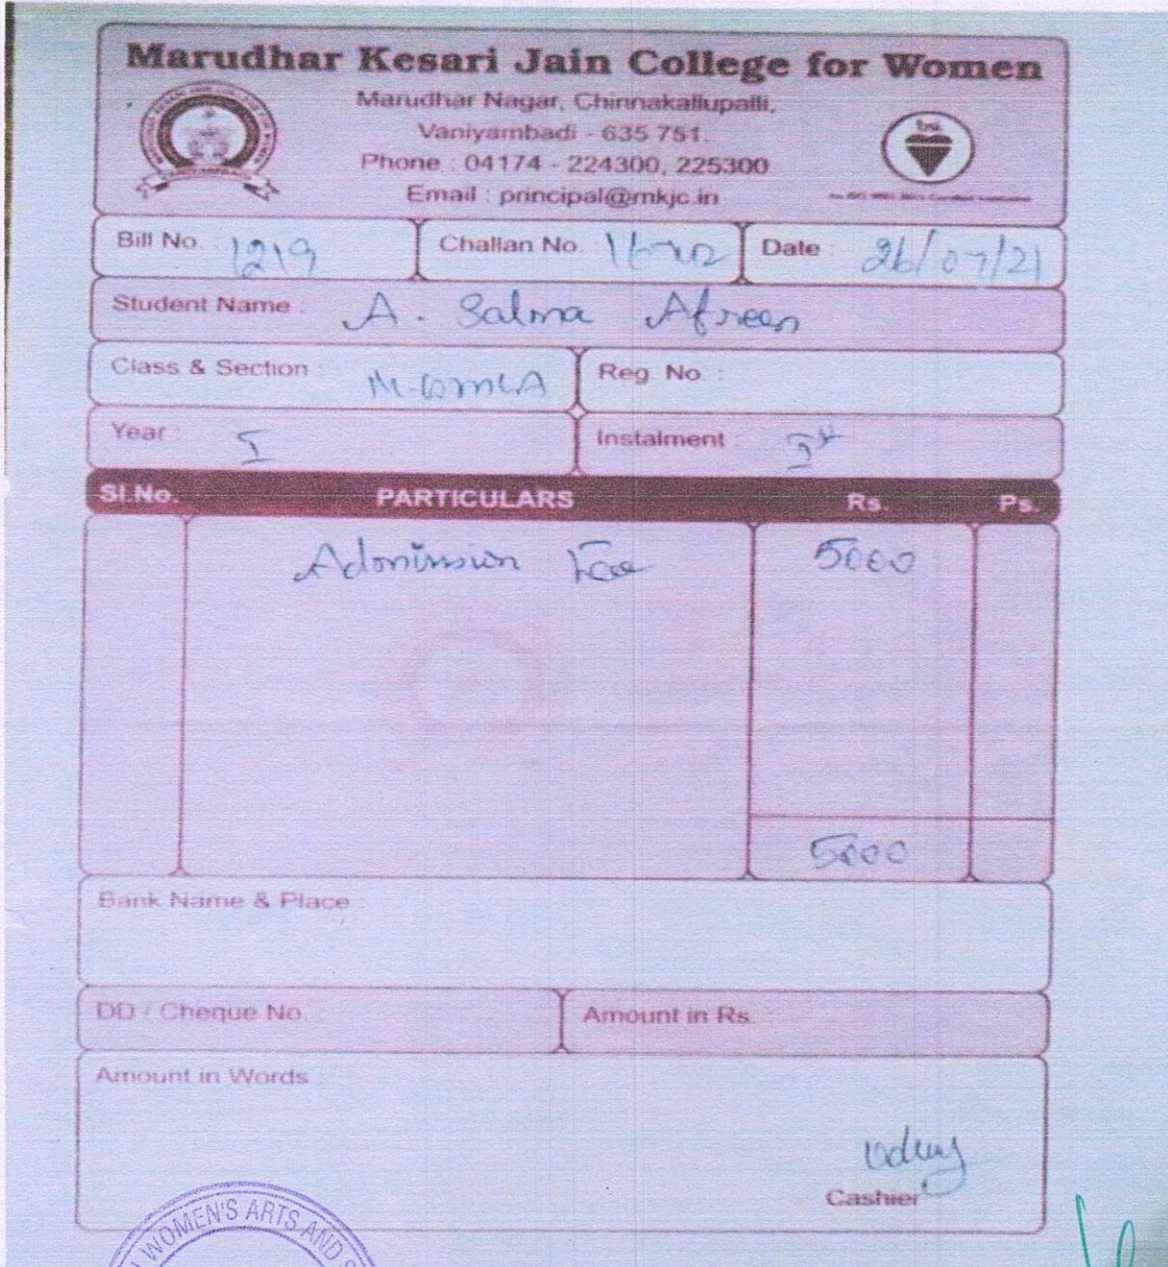 Marudhar Kesari Jain College for Women
Marudhar Nagar, Chinnakallupalli,
Vaniyambadi - 635 751.
Phone : 04174 - 224300, 225300
Email : principal@mkjc.in
Bill No. : 1219 Challan No. : Date : 26/07/21
Student Name : A. Salma Afreen
Class & Section : Reg. No. :
Year : I Instalment : Ist
Sl.No. PARTICULARS Rs. Ps.
Admission Fee 5000
5000
Bank Name & Place :
DD / Cheque No. : Amount in Rs. :
Amount in Words :
Cashier
WOMEN'S ARTS AND